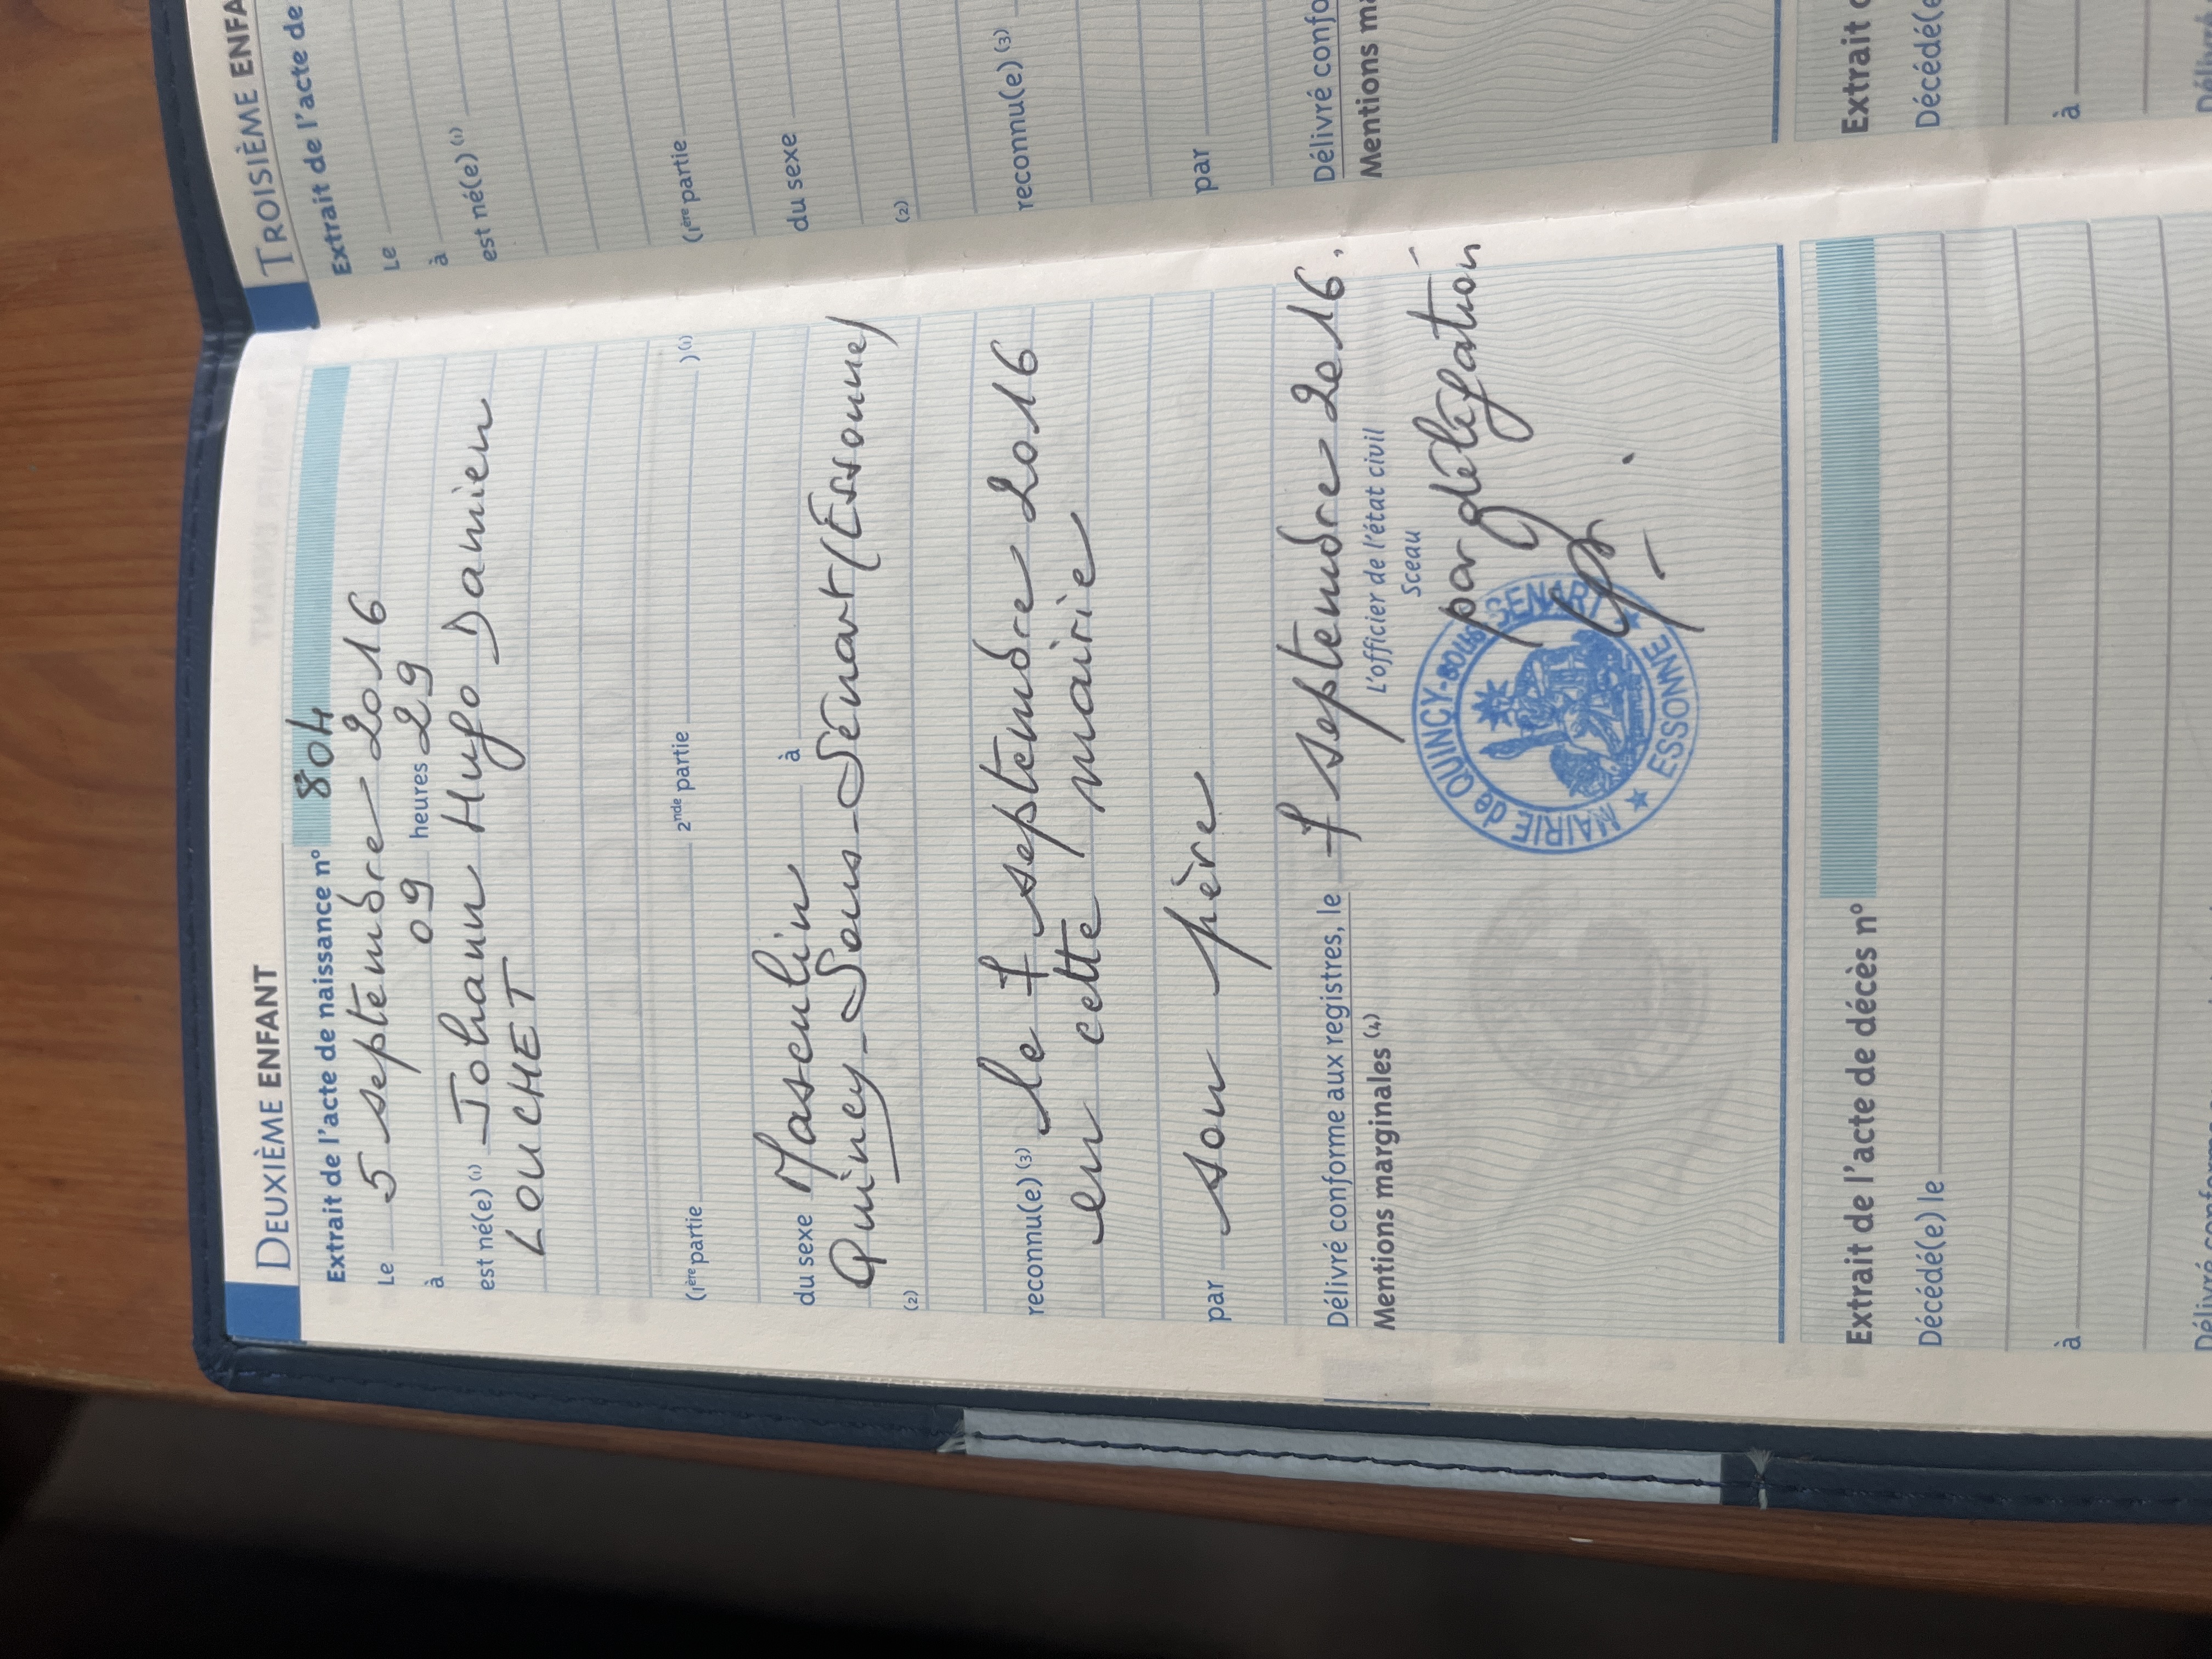 DEUXIÈME ENFANT
Extrait de l'acte de naissance n° 804
Le 5 septembre 2016
à 09 heures 29
est né(e) (1) Johann Hugo Damien
LOUCHET
(1ère partie 2nde partie )(1)
du sexe Masculin à
Quincy-Sous-Sénart (Essonne)
(2)
reconnu(e) (3) le 7 septembre 2016
en cette mairie
par son père
Délivré conforme aux registres, le 7 septembre 2016.
Mentions marginales (4) L'officier de l'état civil
Sceau
par délégation
MAIRIE de QUINCY-SOUS-SENART
★ ESSONNE ★
Extrait de l'acte de décès n°
Décédé(e) le
à
TROISIÈME ENFA
Extrait de l'acte de
Le
à
est né(e) (1)
(1ère partie
du sexe
(2)
reconnu(e) (3)
par
Délivré confo
Mentions ma
Extrait d
Décédé(e
à